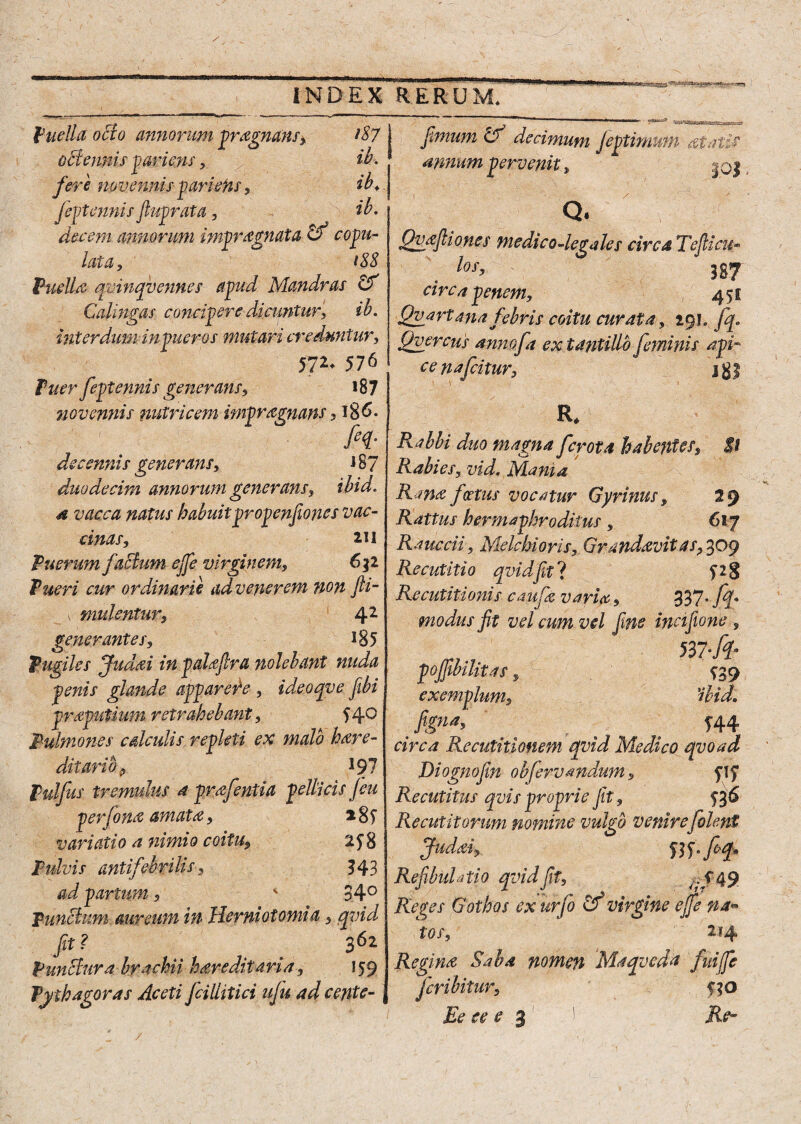 INDEX RERUM.
Puella octo annorum prægnans, 187
octennis pariens, ib.
fere novennis pariens, ib.
septennis stuprata, ib.
decem annorum imprægnata & copu-
lata, 188
Puellæ qvinqvennes apud Mandras &
Calingas concipere dicuntur, ib.
interdum in pueros mutari creduntur,
572. 576
Puer septennis generans, 187
novennis nutricem imprægnans, 186.
seq.
decennis generans, 187
duodecim annorum generans, ibid.
a vacca natus habuit propensiones vac-
cinas, 211
Puerum factum esse virginem, 632
Pueri cur ordinarie ad venerem non sti-
mulentur, 42
generantes, 185
Pugiles Judæi in palæstra nolebant nuda
penis glande apparere, ideoqve sibi
præputium retrahebant, 540
Pulmones calculis repleti ex malo hære-
ditario, 197
Pulsus tremulus a præsentia pellicis seu
personæ amatæ, 285
variatio a nimio coitu, 258
Pulvis antifebrilis, 343
ad partum, 340
Punctum aureum in Herniotomia, qvid
sit? 362
Punctura brachii hæreditaria, 159
Pythagoras Aceti scillitici usu ad cente-
simum & decimum septimum ætatis
annum pervenit, 303.
Q.
Qvæstiones medico-legales circa Testicu-
los, 387
circa penem, 451
Qvartana febris coitu curata, 291. sq.
Qvercus annosa ex tantillo seminis api-
ce nascitur, 183
R.
Rabbi duo magna scrota habentes, 81
Rabies, vid. Mania
Ranæ fœtus vocatur Gyrinus, 29
Rattus hermaphroditus, 617
Rauccii, Melchioris, Grandævitas, 309
Recutitio qvid sit? 528
Recutitionis causæ variæ, 337. sq.
modus fit vel cum vel sine incisione,
537. sq.
possibilitas, 539
exemplum, ibid.
signa, 544
circa Recutitionem qvid Medico qvoad
Diognosin observandum, 515
Recutitus qvis proprie sit, 536
Recutitorum nomine vulgo venire solent
Judæi, 535. seq.
Resibulatio qvid sit, 549
Reges Gothos ex urso & virgine esse na-
tos, 214
Reginæ Saba nomen Maqveda fuisse
scribitur, 530
Ee ee e 3
Re-